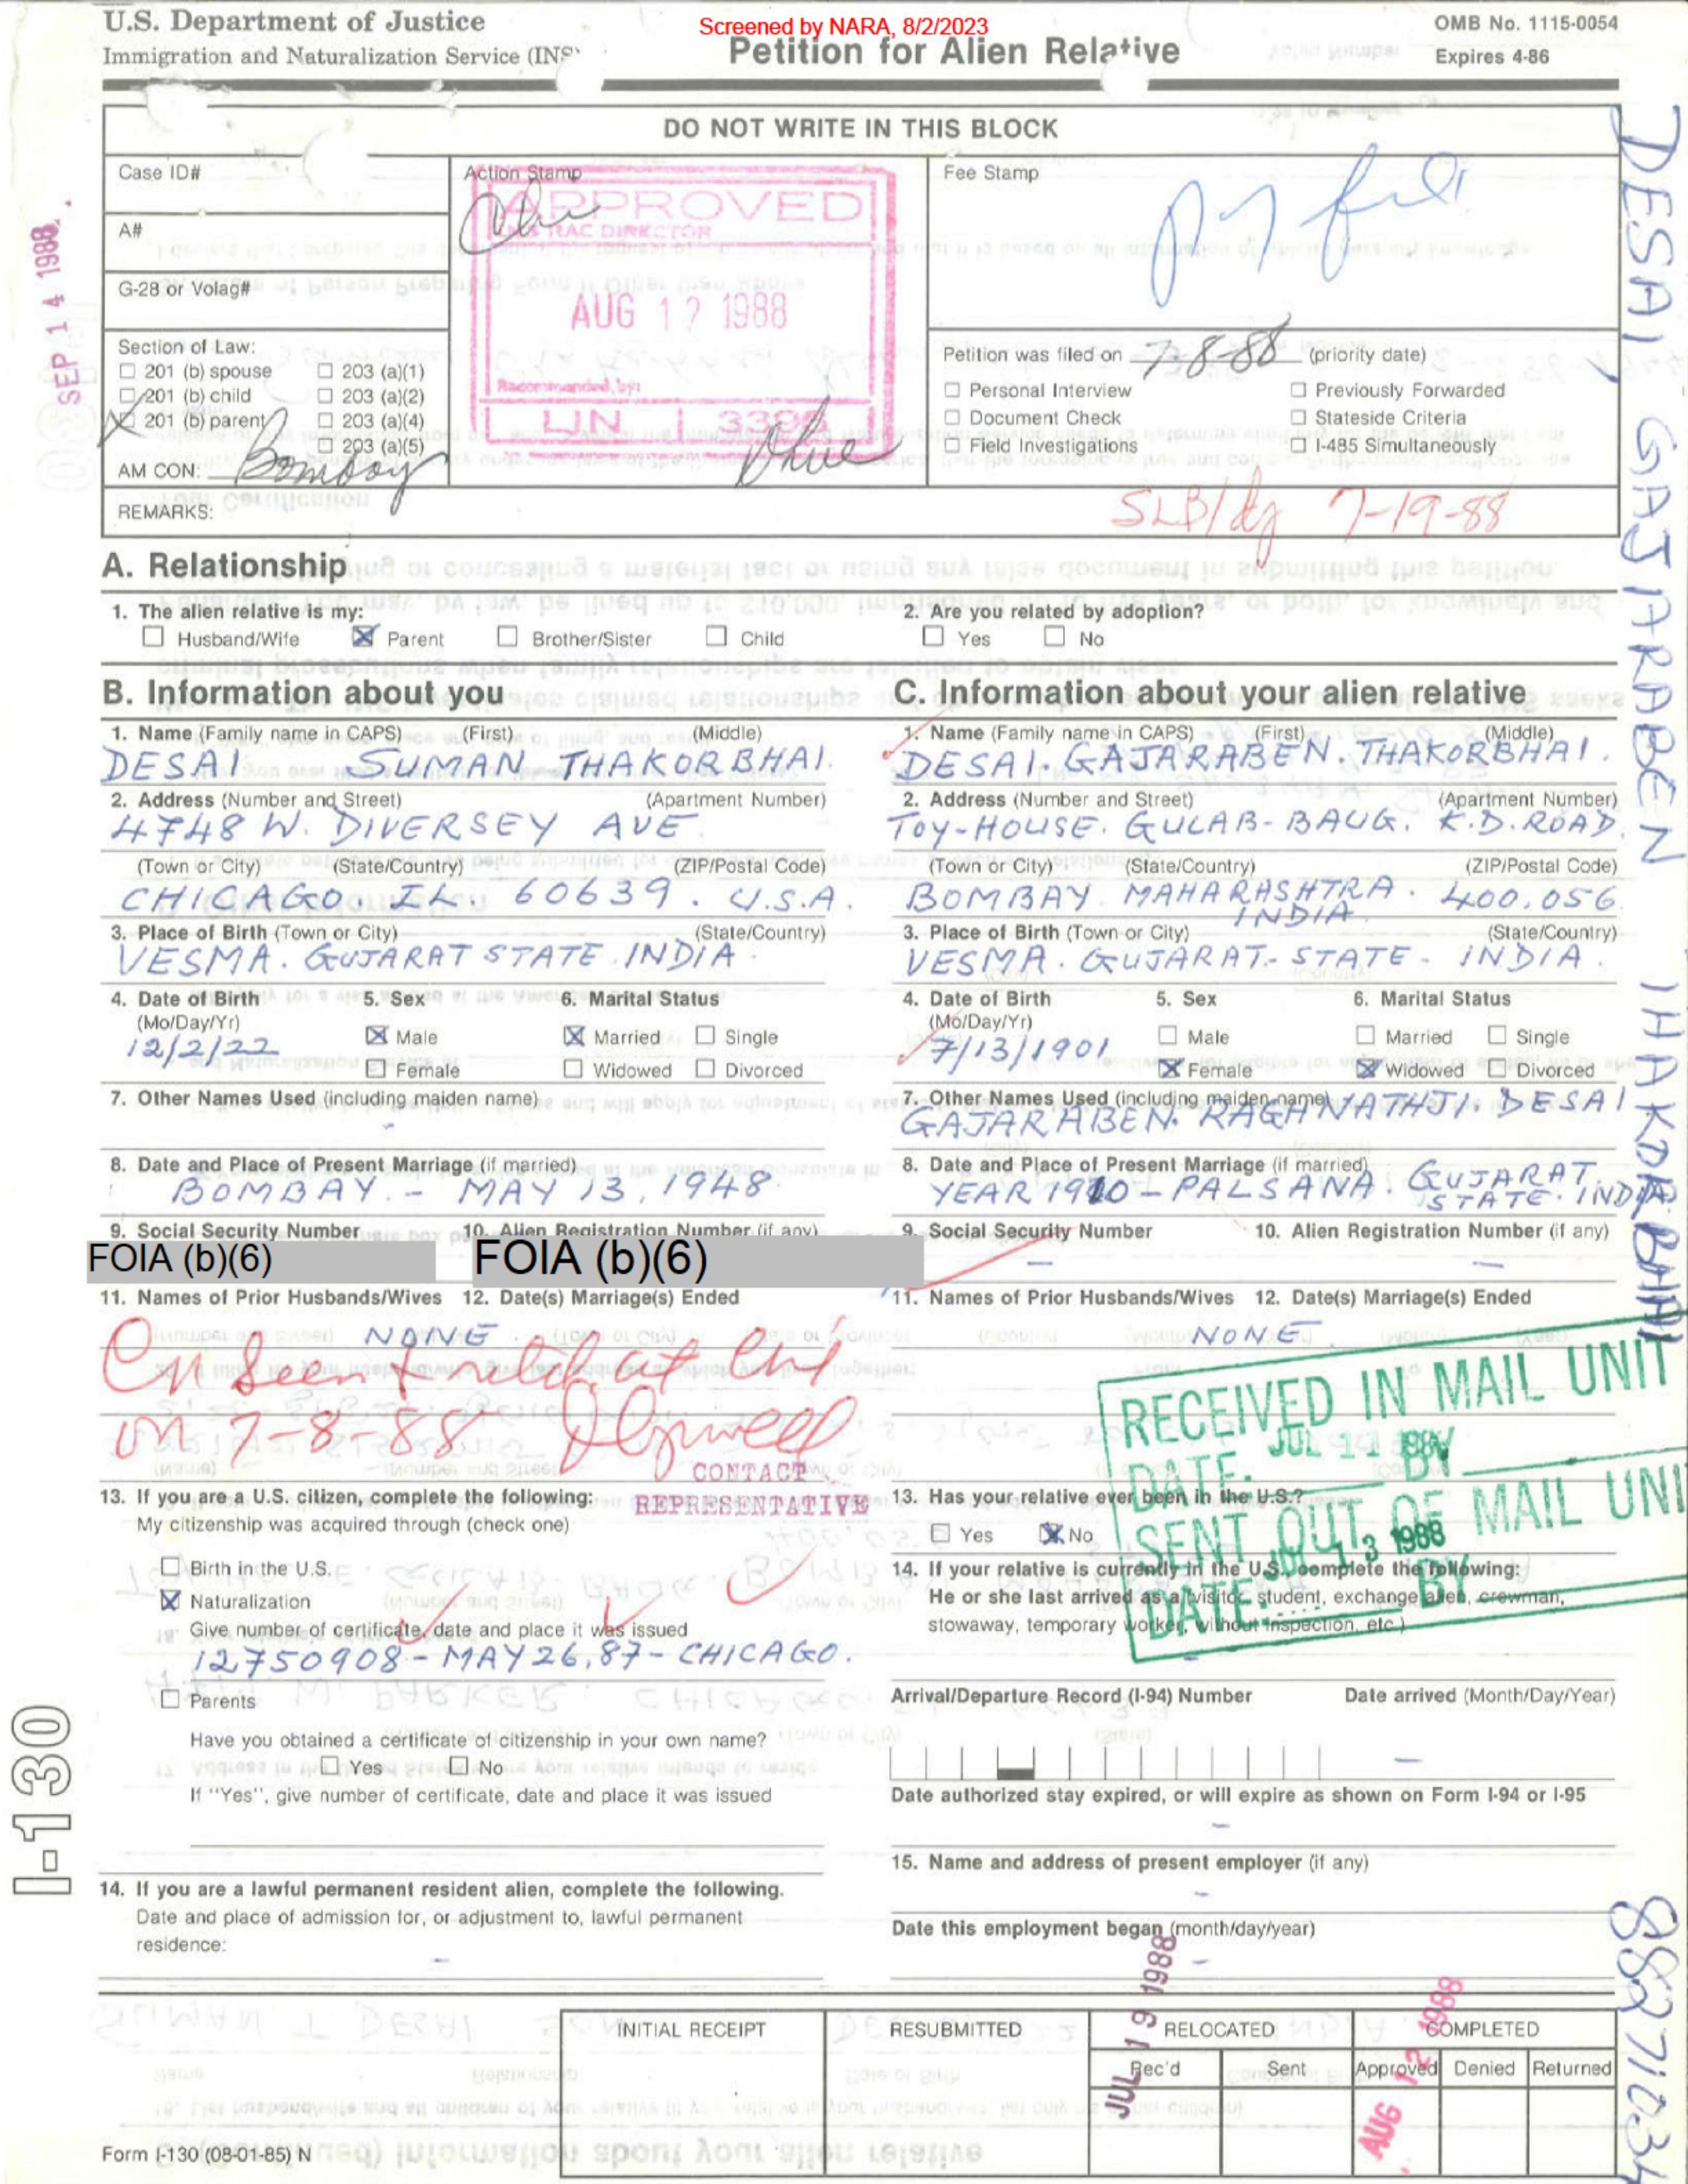 U.S. Department of Justice
Immigration and Naturalization Service (INS)
Screened by NARA, 8/2/2023
Petition for Alien Relative
OMB No. 1115-0054
Expires 4-86
DO NOT WRITE IN THIS BLOCK
Case ID#
A#
G-28 or Volag#
Section of Law:
201 (b) spouse
203 (a)(1)
201 (b) child
203 (a)(2)
201 (b) parent
203 (a)(4)
203 (a)(5)
AM CON: Bombay
REMARKS:
Action Stamp
APPROVED
DIRECTOR
AUG 12 1988
Recommended by:
LIN
Fee Stamp
Petition was filed on 7-8-88 (priority date)
Personal Interview
Previously Forwarded
Document Check
Stateside Criteria
Field Investigations
I-485 Simultaneously
7-19-88
SEP 14 1988
DESAI GAJARABEN THAKORBHAI
A. Relationship
1. The alien relative is my:
Husband/Wife Parent Brother/Sister Child
2. Are you related by adoption?
Yes No
B. Information about you
1. Name (Family name in CAPS) (First) (Middle)
DESAI SUMAN THAKORBHAI.
2. Address (Number and Street) (Apartment Number)
4748 W. DIVERSEY AVE
(Town or City) (State/Country) (ZIP/Postal Code)
CHICAGO. IL. 60639. U.S.A.
3. Place of Birth (Town or City) (State/Country)
VESMA. GUJARAT STATE. INDIA.
4. Date of Birth 5. Sex 6. Marital Status
(Mo/Day/Yr)
12/2/22
Male Married Single
Female Widowed Divorced
7. Other Names Used (including maiden name)
-
8. Date and Place of Present Marriage (if married)
BOMBAY. - MAY 13, 1948
9. Social Security Number 10. Alien Registration Number (if any)
FOIA (b)(6) FOIA (b)(6)
11. Names of Prior Husbands/Wives 12. Date(s) Marriage(s) Ended
NONE
on 7-8-88
CONTACT
REPRESENTATIVE
13. If you are a U.S. citizen, complete the following:
My citizenship was acquired through (check one)
Birth in the U.S.
Naturalization
Give number of certificate, date and place it was issued
12750908 - MAY 26, 87 - CHICAGO.
Parents
Have you obtained a certificate of citizenship in your own name?
Yes No
If "Yes", give number of certificate, date and place it was issued
14. If you are a lawful permanent resident alien, complete the following.
Date and place of admission for, or adjustment to, lawful permanent
residence:
-
C. Information about your alien relative
1. Name (Family name in CAPS) (First) (Middle)
DESAI. GAJARABEN. THAKORBHAI.
2. Address (Number and Street) (Apartment Number)
TOY-HOUSE. GULAB-BAUG. K.D. ROAD.
(Town or City) (State/Country) (ZIP/Postal Code)
BOMBAY. MAHARASHTRA. 400.056
INDIA
3. Place of Birth (Town or City) (State/Country)
VESMA. GUJARAT- STATE - INDIA.
4. Date of Birth 5. Sex 6. Marital Status
(Mo/Day/Yr)
7/13/1901
Male Married Single
Female Widowed Divorced
7. Other Names Used (including maiden name)
GAJARABEN. RAGHNATHJI. DESAI
8. Date and Place of Present Marriage (if married)
YEAR 1910 - PALSANA. GUJARAT
STATE. INDIA
9. Social Security Number 10. Alien Registration Number (if any)
- -
11. Names of Prior Husbands/Wives 12. Date(s) Marriage(s) Ended
NONE.
RECEIVED IN MAIL UNIT
DATE. JUL 11 BY
SENT OUT OF MAIL UNIT
DATE. 13 1988 BY
13. Has your relative ever been in the U.S.?
Yes No
14. If your relative is currently in the U.S., complete the following:
He or she last arrived as a (visitor, student, exchange alien, crewman,
stowaway, temporary worker, without inspection, etc.)
-
Arrival/Departure Record (I-94) Number Date arrived (Month/Day/Year)
-
Date authorized stay expired, or will expire as shown on Form I-94 or I-95
-
15. Name and address of present employer (if any)
-
Date this employment began (month/day/year)
-
I-130
INITIAL RECEIPT RESUBMITTED RELOCATED COMPLETED
Rec'd Sent Approved Denied Returned
JUL 19 1988
AUG 12 1988
Form I-130 (08-01-85) N